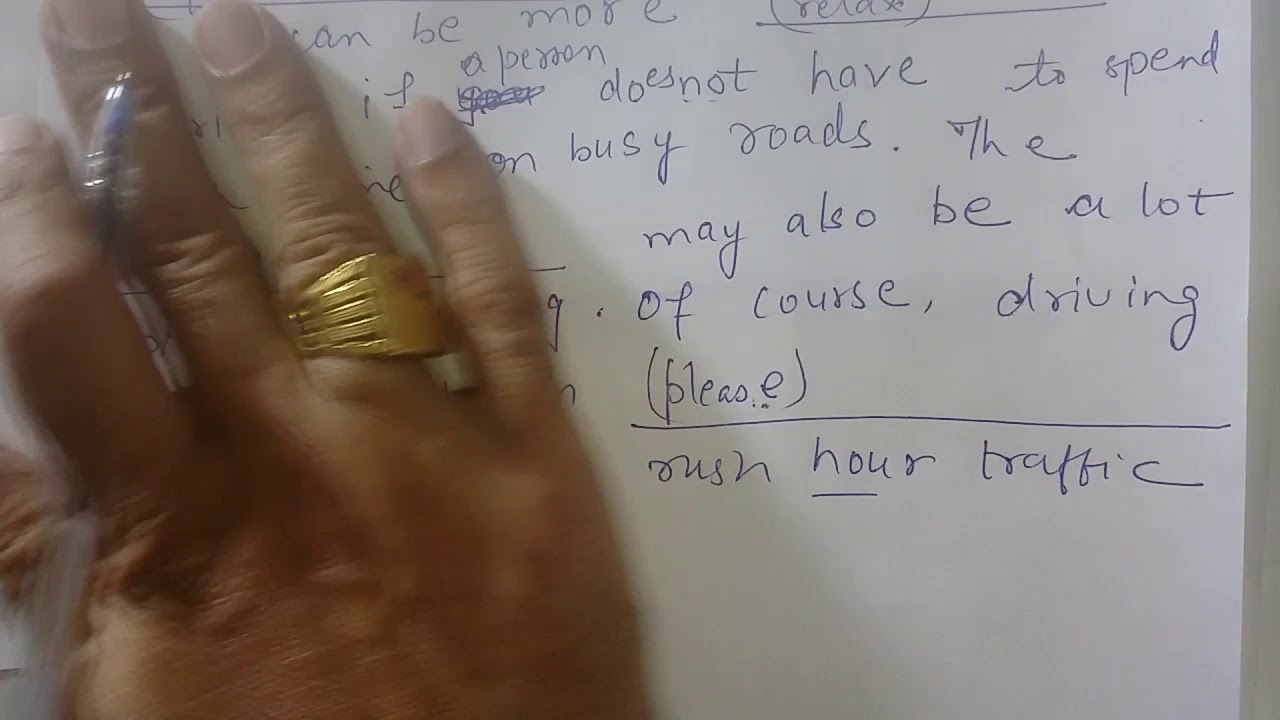 can be more (relax)
if a person doesnot have to spend
on busy roads. The
may also be a lot
g. Of course, driving
(please)
rush hour traffic